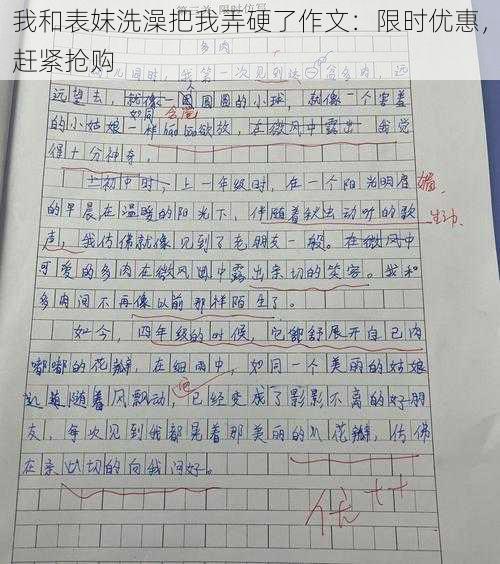 我和表妹洗澡把我弄硬了作文：限时优惠，
赶紧抢购
多肉
幼儿园时，我第一次见到这一盆多肉，远
远望去，就像一团圆圆的小球，就像一个害羞
的小姑娘一样含苞欲放，在微风中露出 我觉
得十分神奇。
上初中时，上一年级时，在一个阳光明眉
的早晨在温暖的阳光下，伴随着秋出动听的歌 生动
声，我仿佛就像见到了老朋友一般。在微风中
可爱的多肉在微风 中露出亲切的笑容。我和
多肉间不再像以前那样陌生了。
如今，四年级的时候，它都舒展开自己肉
嘟嘟的花瓣，在细雨中，如同一个美丽的姑娘
随着风飘动，它已经变成了影影不离的好朋
友，每次见到我都晃着那美丽的小花瓣，仿佛
在亲切的向我问好。
优++